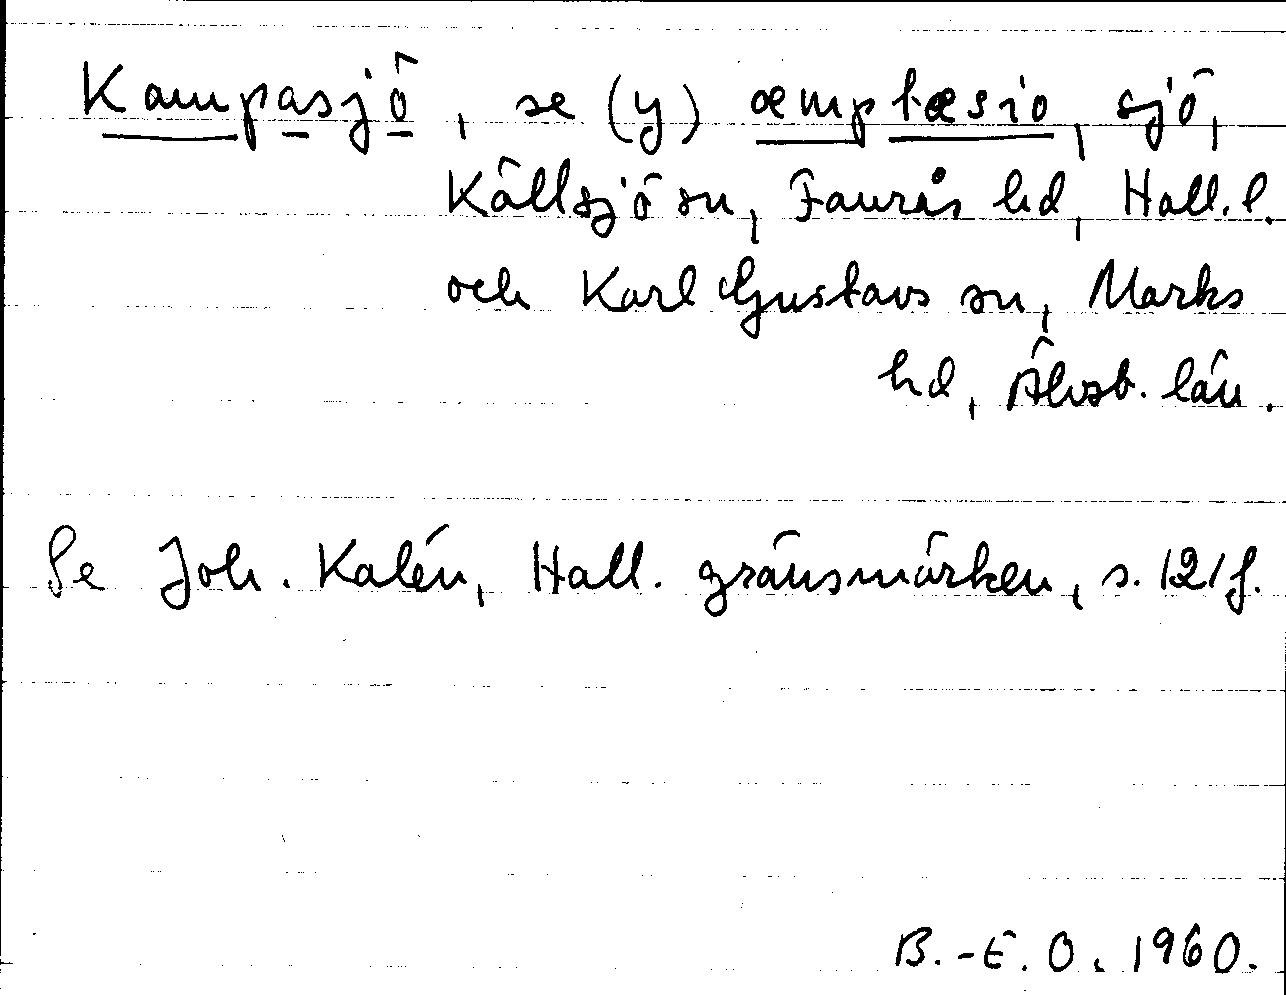 Kampasjö, se (y) æmptæsio, sjö,
Källsjö sn, Faurås hd, Hall. l.
och Karl Gustavs sn, Marks
hd, Älvsb. län.
Se Joh. Kalén, Hall. gränsmärken, s. 121 f.
B.-E. O. 1960.